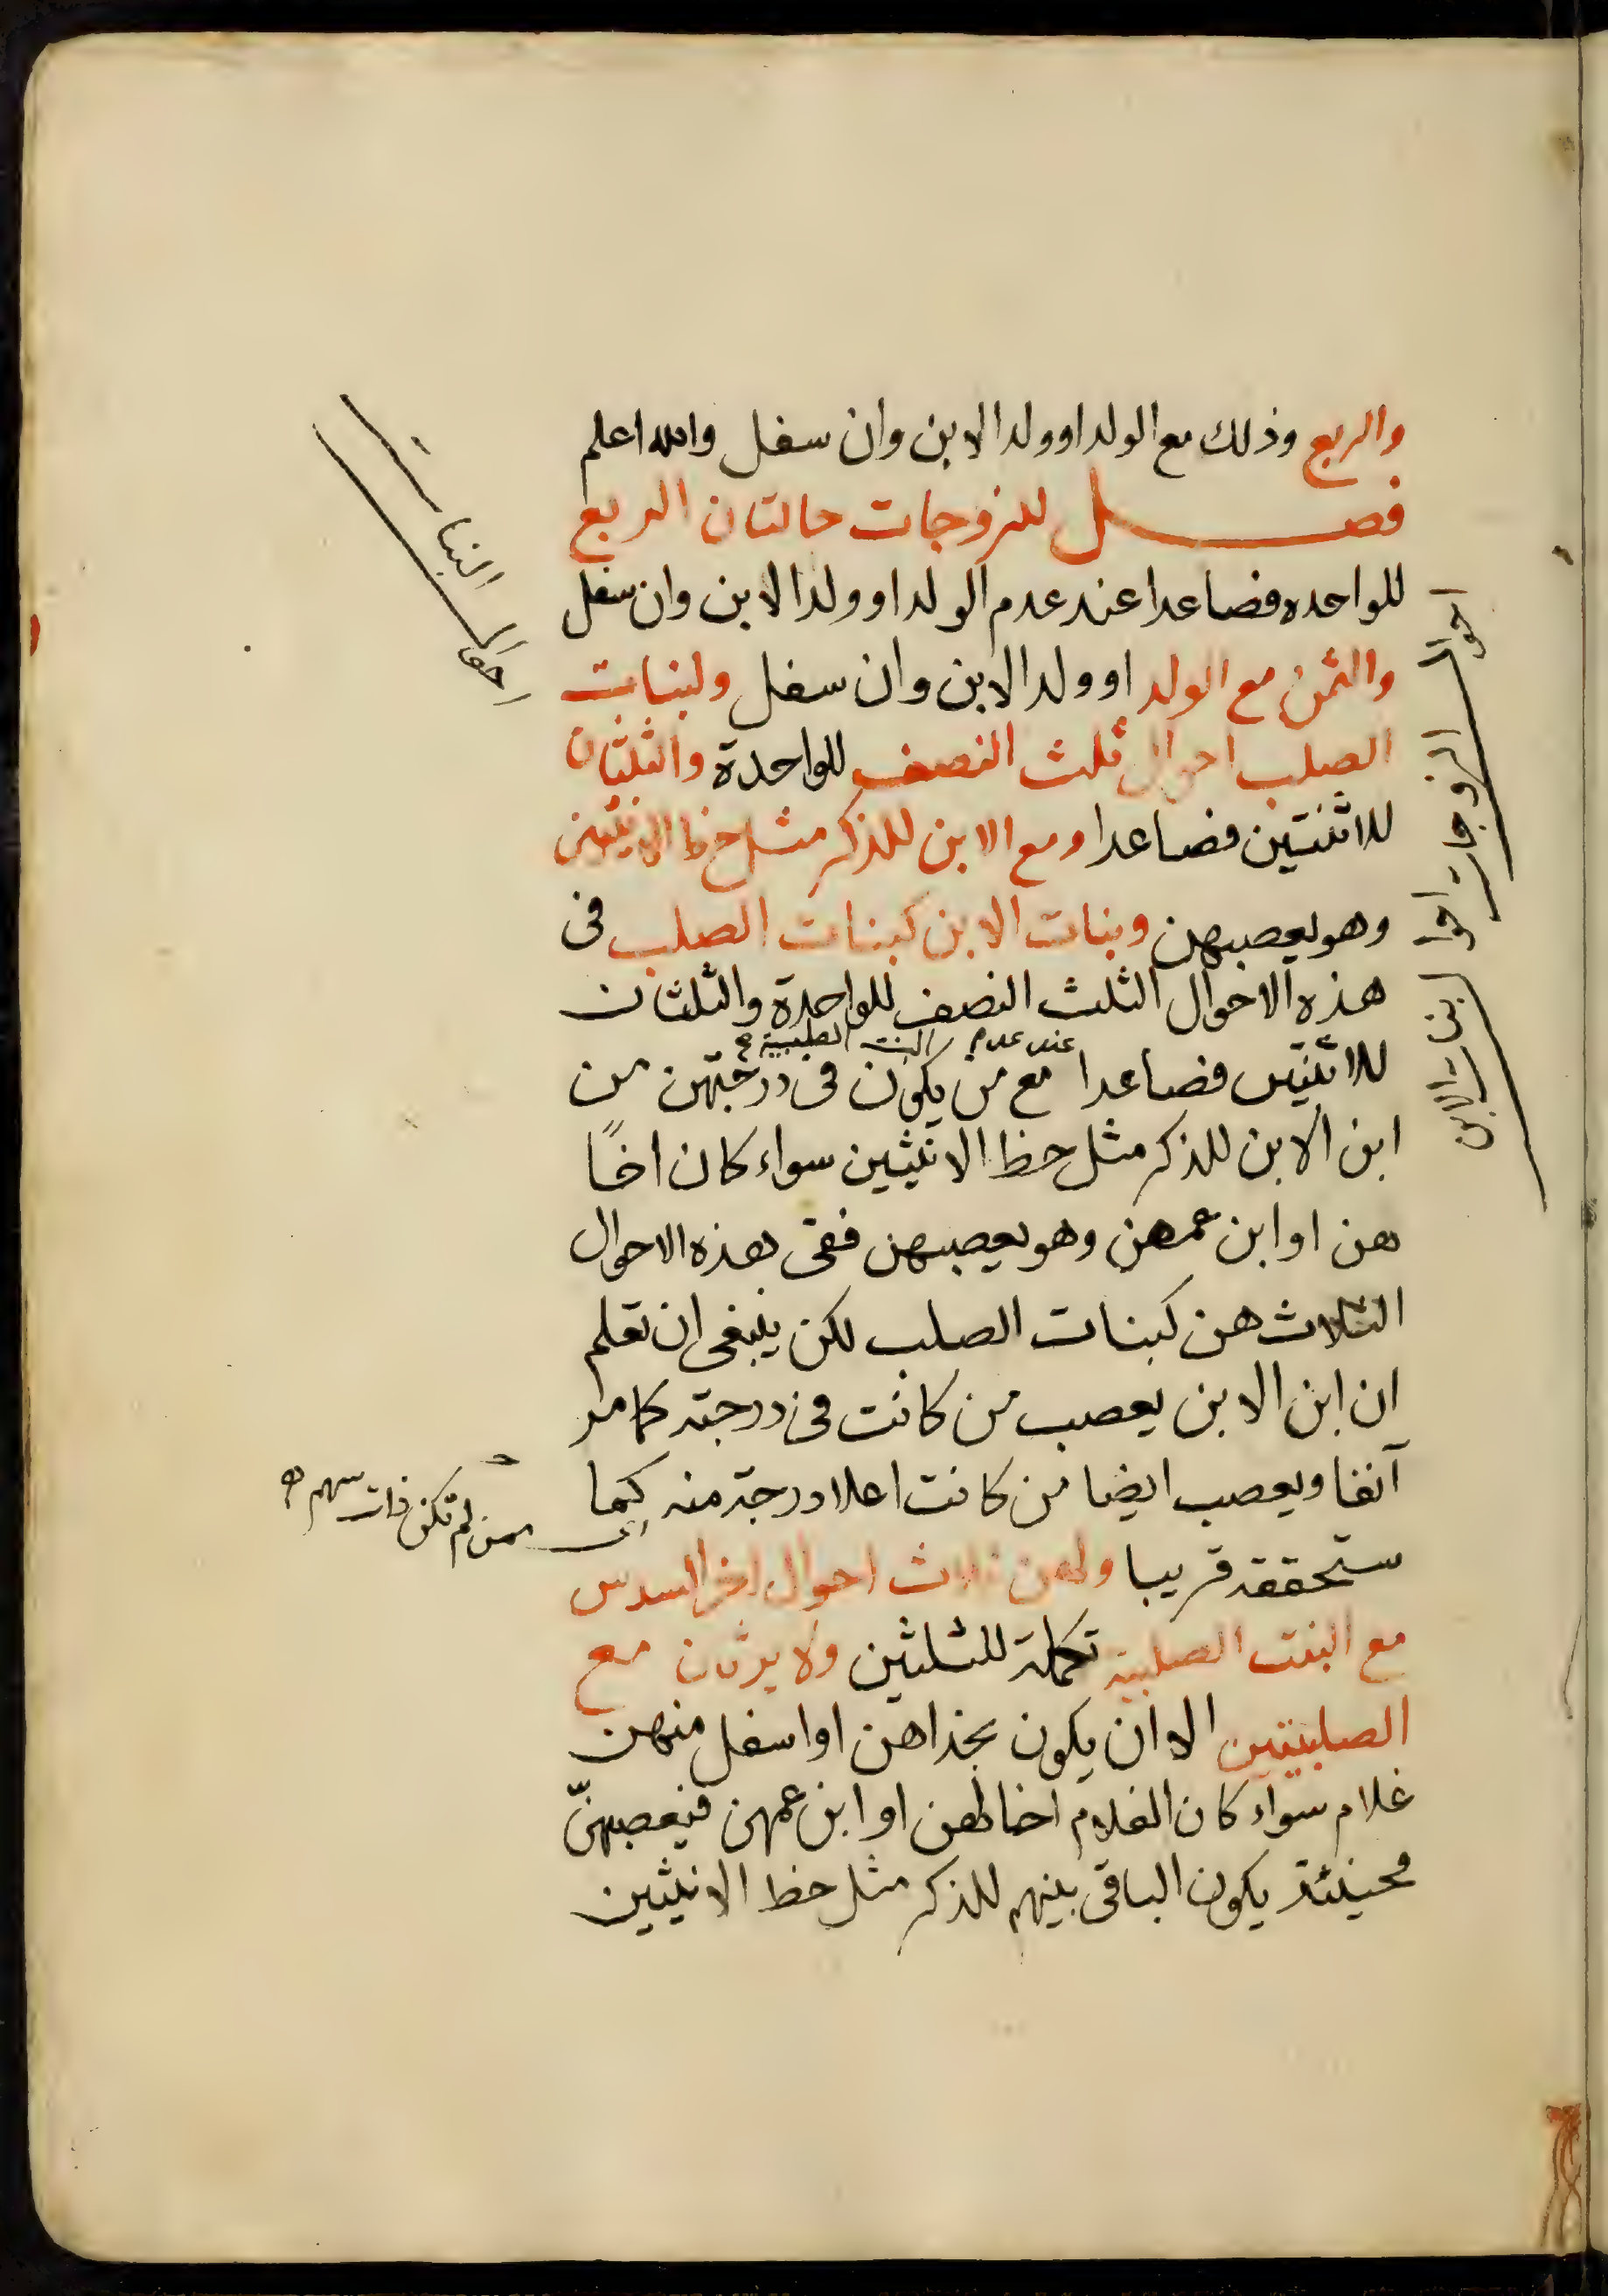 والربع وذلك مع الولد او ولد الابن وان سفل والله اعلم
فصل للزوجات حالتان الربع
للواحده فصاعدا عند عدم الولد او ولد الابن وان سفل
والثمن مع الولد او ولد الابن وان سفل ولبنات
الصلب احوال ثلث النصف للواحدة والثلثان
للاثنتين فصاعدا ومع الابن للذكر مثل حظ الانثيين
وهو يعصبهن وبنات الابن كبنات الصلب فى
هذه الاحوال الثلث النصف للواحدة والثلثان
عند عدم البنت الصلبية صح
للاثنتين فصاعدا مع من يكون فى درجتهن من
ابن الابن للذكر مثل حظ الانثيين سواء كان اخًا
لهن او ابن عمهن وهو يعصبهن ففى هذه الاحوال
الثلاث هن كبنات الصلب لكن ينبغى ان تعلم
ان ابن الابن يعصب من كانت فى درجته كما مر
آنفا ويعصب ايضا من كانت اعلا درجة منه كما
ستحققه قريبا ولهن ثلاث احوال اخر السدس
مع البنت الصلبية تكملة للثلثين ولا يرثان مع
الصلبيتين الا ان يكون بحذاهن او اسفل منهن
غلام سواء كان الغلام اخا لهن او ابن عمهن فيعصبهنّ
فحينئذ يكون الباقى بينهم للذكر مثل حظ الانثيين
احوال البنات
احوال الزوجات
احوال بنات الابن
ممن لم تكن ذات سهم